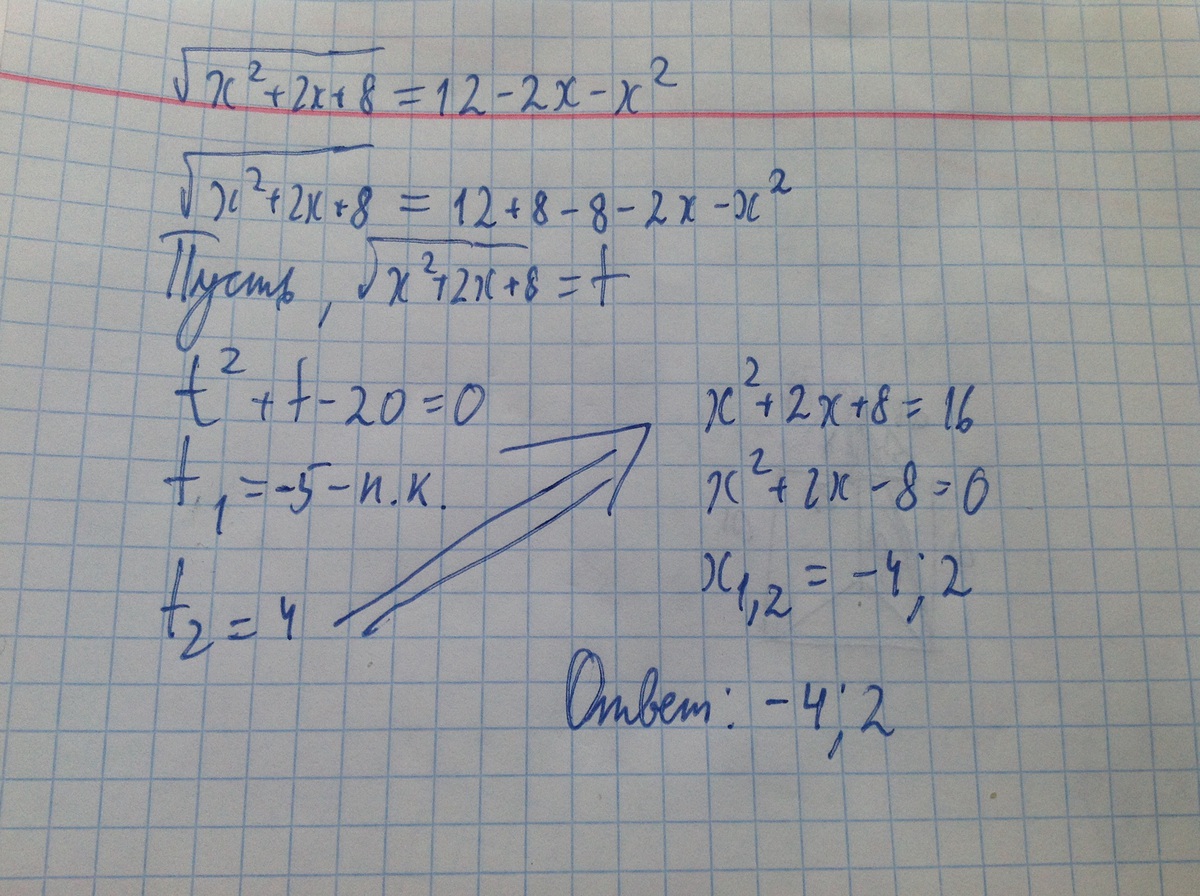 √(x²+2x+8) = 12-2x-x²
√(x²+2x+8) = 12+8-8-2x-x²
Пусть, √(x²+2x+8) = t
t²+t-20=0
t₁=-5-п.к.
t₂=4
x²+2x+8=16
x²+2x-8=0
x₁,₂=-4;2
Ответ: -4;2